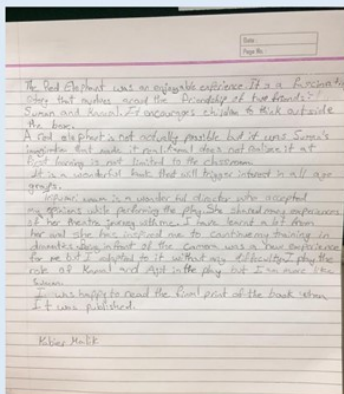 Date :
Page No. :
The Red Elephant was an enjoyable experience. It is a fascinating
story that evolves around the friendship of two friends
Suman and Kamal. It encourages children to think outside
the box.
A red elephant is not actually possible but it was Suman's
imagination that made it real. Kamal does not it at
first. is not limited to the classroom
It is a wonderful book that will trigger interest in all age
groups.
mam is a wonderful director who accepted
my opinions while performing the play. She shared many experiences
of her theatre journey with me. I have learnt a lot from
her and she has inspired me to continue my training in
dramatics. Being infront of the camera was a new experience
for me but I adapted to it without any difficulty. I play the
role of Kamal and in the play but I am more like
Suman.
I was happy to read the final print of the book when
it was published.
Malik